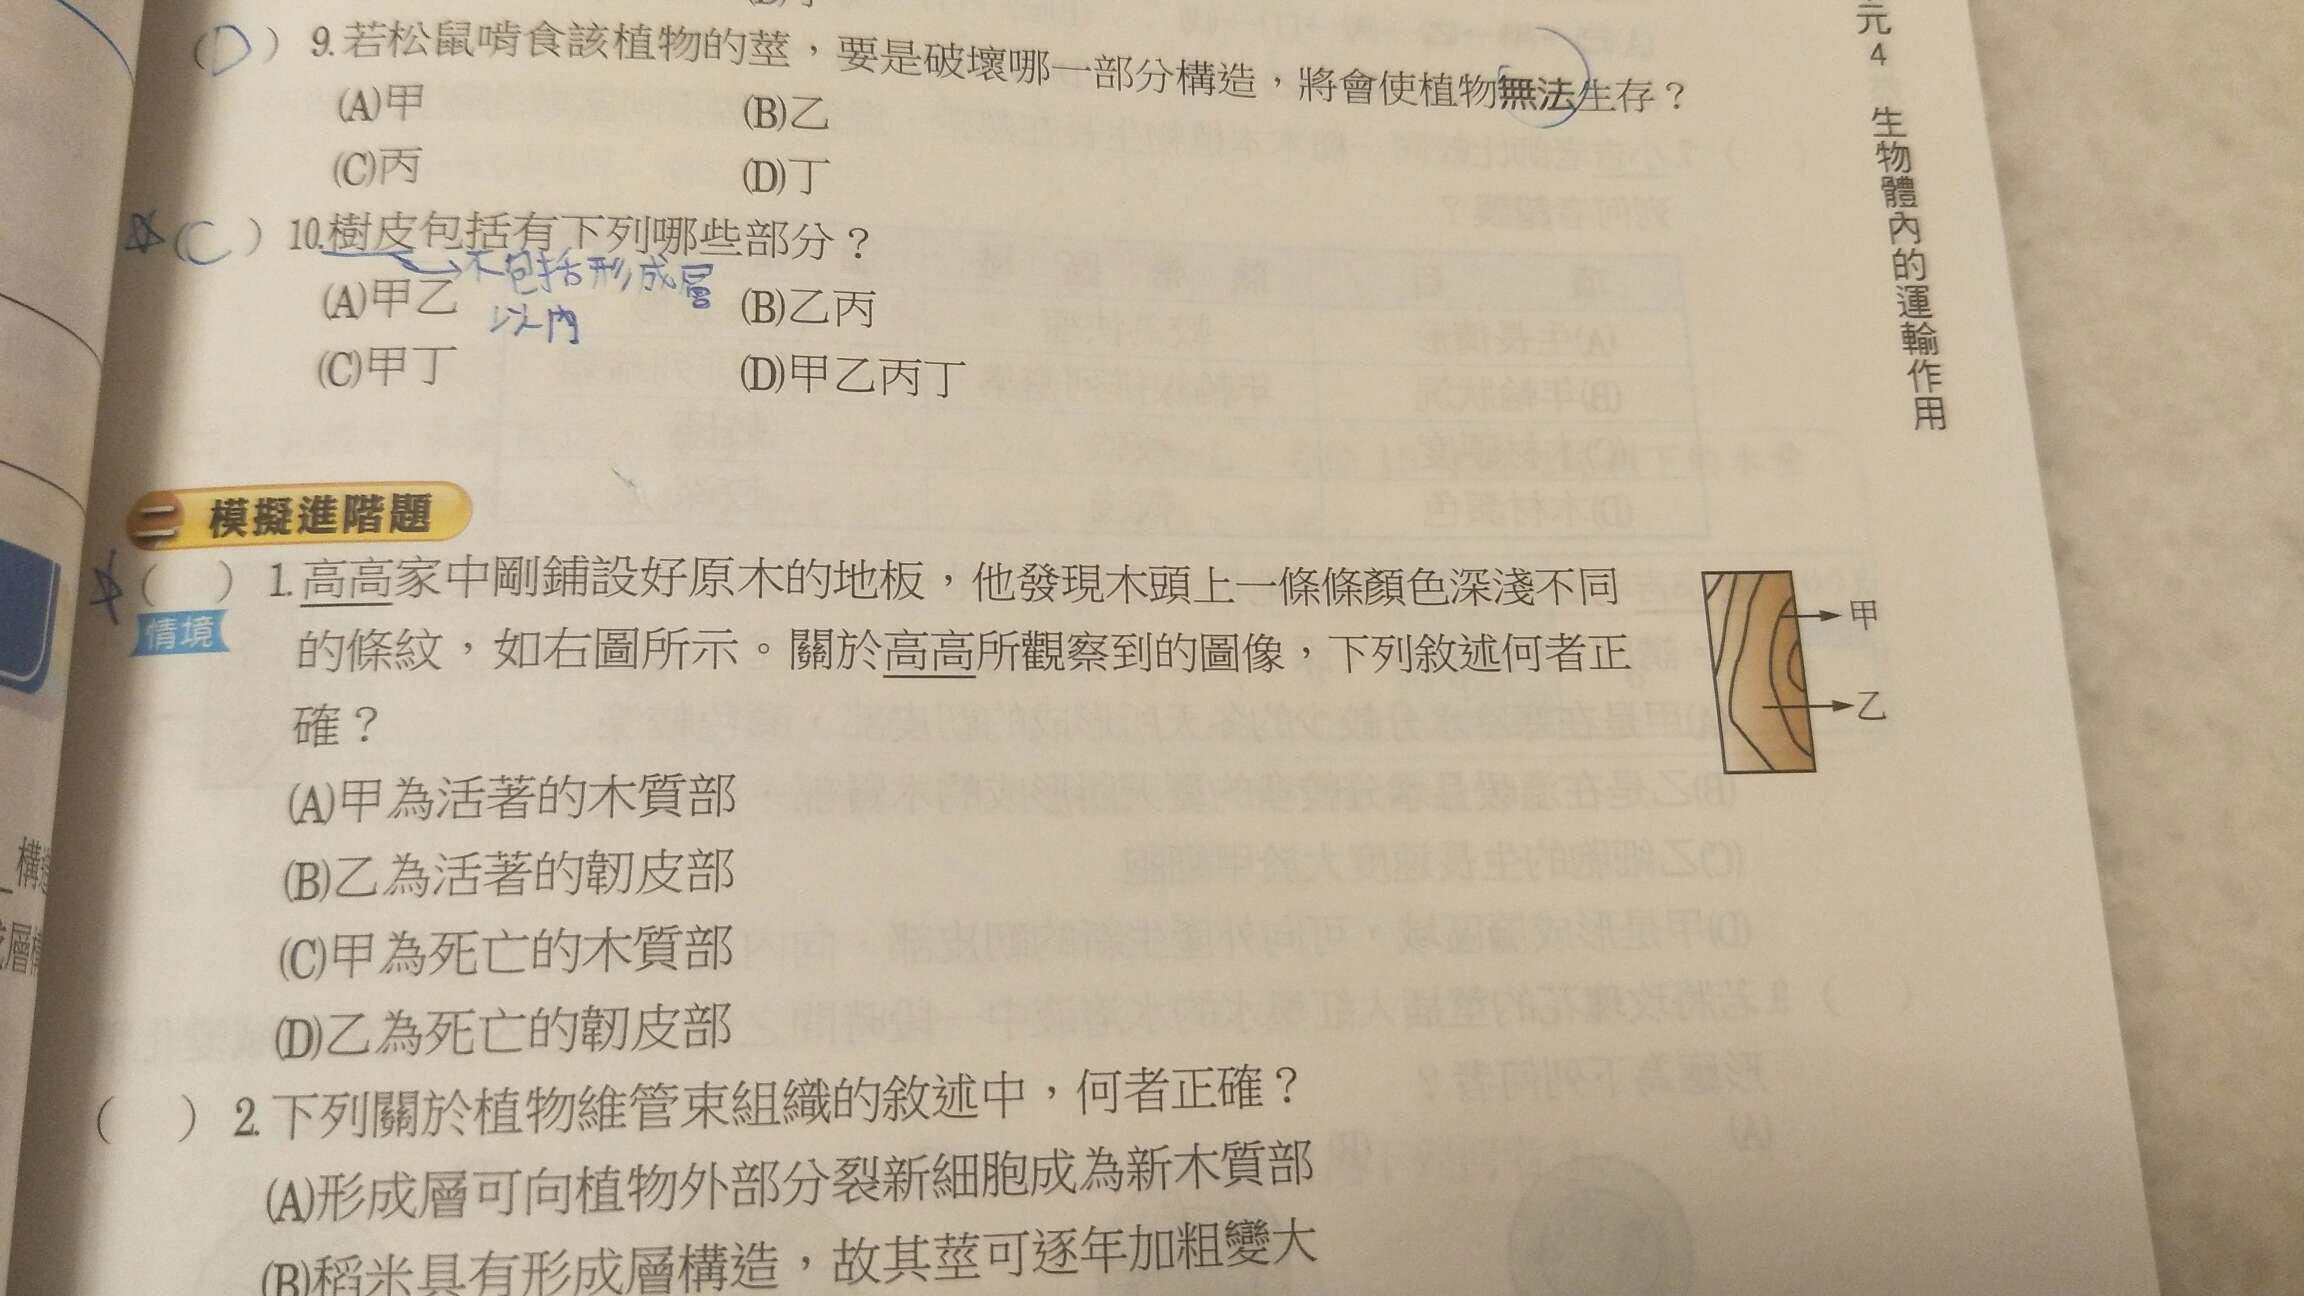 元4 生物體內的運輸作用
(D) 9.若松鼠啃食該植物的莖，要是破壞哪一部分構造，將會使植物無法生存？
(A)甲 (B)乙
(C)丙 (D)丁
(C) 10.樹皮包括有下列哪些部分？
不包括形成層
以內
(A)甲乙 (B)乙丙
(C)甲丁 (D)甲乙丙丁
二 模擬進階題
( ) 1.高高家中剛鋪設好原木的地板，他發現木頭上一條條顏色深淺不同
情境
的條紋，如右圖所示。關於高高所觀察到的圖像，下列敘述何者正
確？
甲
乙
(A)甲為活著的木質部
(B)乙為活著的韌皮部
(C)甲為死亡的木質部
(D)乙為死亡的韌皮部
( ) 2.下列關於植物維管束組織的敘述中，何者正確？
(A)形成層可向植物外部分裂新細胞成為新木質部
(B)稻米具有形成層構造，故其莖可逐年加粗變大